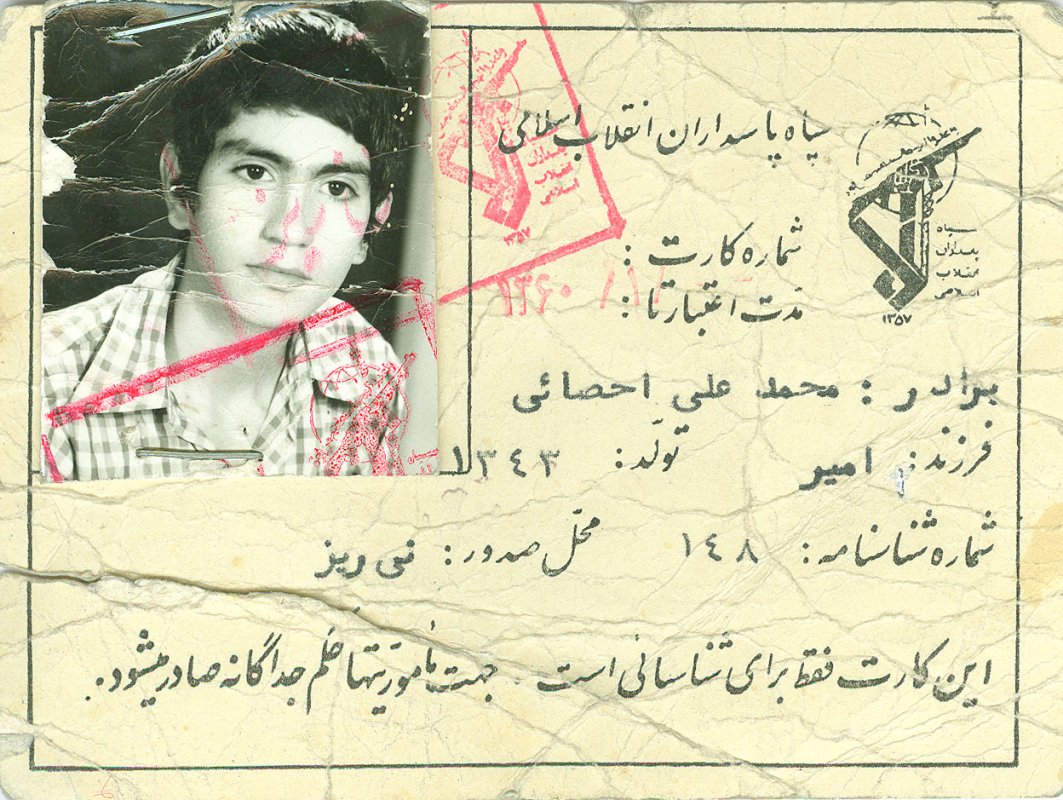 سپاه پاسداران انقلاب اسلامی
سپاه
پاسداران
انقلاب
اسلامی
۱۳۵۷
پاسداران
انقلاب
اسلامی
۱۳۵۷
شماره کارت :
مدت اعتبار تا : ۱۳۶۰
برادر : محمد علی احصائی
فرزند : امیر تولّد : ۱۳۴۳
شماره شناسنامه : ۱۴۸ محلّ صدور : نی ریز
این کارت فقط برای شناسائی است . جهت مأموریتها حکم جداگانه صادر میشود .